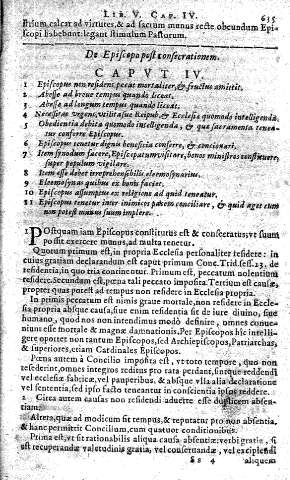 LIB. V. CAP. IV. 635
strium calcar ad virtutes, & ad sacrum munus recte obeundum Epi-
scopi habebunt: legant stimulum Pastorum.
De Episcopo post consecrationem.
CAPVT IV.
1 Episcopus non residens, peccat mortaliter, & fructus amittit.
2 Abesse ad breue tempus quando liceat.
3 Abesse ad longum tempus quando liceat.
4 Necessitas vrgens, vtilitas aut Reipub. & Ecclesia quomodo intelligenda.
5 Obedientia debita quomodo intelligenda, & qua sacramenta tenea-
tur conferre Episcopus.
6 Episcopus tenetur dignis beneficia conferre, & concionari.
7 Item synodum facere, Episcopatum visitare, bonos ministros constituere,
super populum vigilare.
8 Item esse debet irreprehensibilis eleemosynarius.
9 Eleemosynas quibus ex bonis faciat.
10 Episcopus assumptus ex religione ad quid teneatur.
11 Episcopus tenetur inter inimicos pacem conciliare, & quid aget cum
non potest munus suum implere.
1 POstquam iam Episcopus constitutus est & consecratus, vt suum
possit exercere munus, ad multa tenetur.
Quorum primum est, in propria Ecclesia personaliter residere: in
cuius gratiam declarandum est caput primum Conc. Trid. sess. 23. de
residentia, in quo tria continentur. Primum est, peccatum nolentium
residere. Secundum est, pœna tali peccato imposita. Tertium est causæ,
propter quas potest ad tempus non residere in Ecclesia propria.
In primis peccatum est nimis graue mortale, non residere in Eccle-
sia propria absque causa, siue enim residentia sit de iure diuino, siue
humano, quod nos non intendimus modo definire, omnes conue-
niunt esse mortale & magnæ damnationis. Per Episcopos hic intelli-
gere oportet non tantum Episcopos, sed Archiepiscopos, Patriarchas,
& superiores, etiam Cardinales Episcopos.
Pœna autem à Concilio imposita est, vt toto tempore, quo non
resederint, omnes integros reditus pro rata perdant, sintque reddendi
vel ecclesiæ fabricæ, vel pauperibus, & absque vlla alia declaratione
vel sententia, sed ipso facto teneantur in conscientia ipsos reddere.
2 Circa autem causas non residendi aduerte esse duplicem absen-
tiam.
Altera, quæ ad modicum sit tempus, & reputatur pro non absentia,
& hanc permittit Concilium, cum quatuor conditionibus.
Prima est, vt sit rationabilis aliqua causa absentiæ: verbi gratia, si
est recuperandæ valetudinis gratia, vel conseruandæ, vel explendi
Ss 4 aliquem